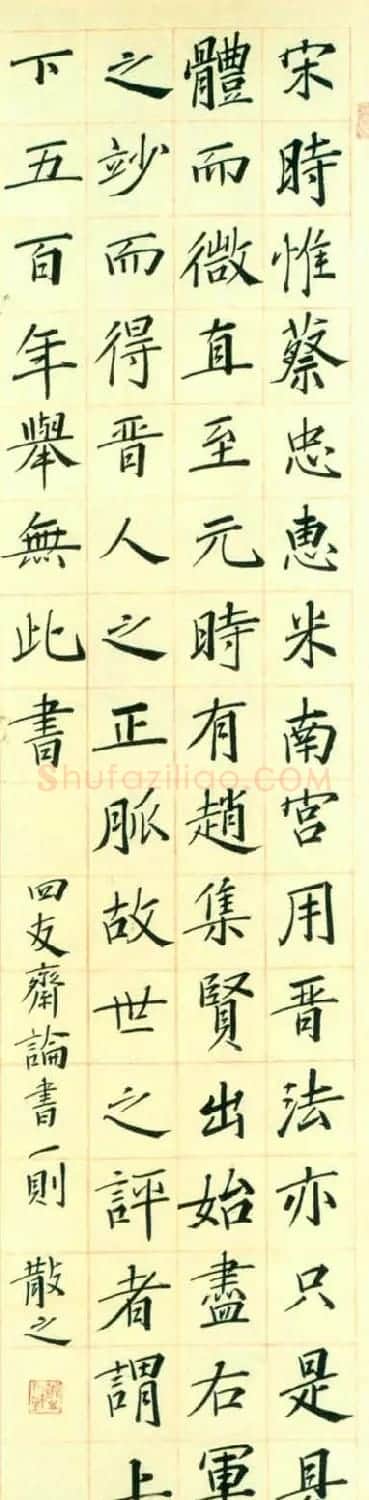 宋時惟蔡忠惠米南宮用晋法亦只是具
體而微直至元時有趙集賢出始盡右軍
之竗而得晋人之正脈故世之評者謂上
下五百年舉無此書
四友齋論書一則 散之
Shufaziliao.COM